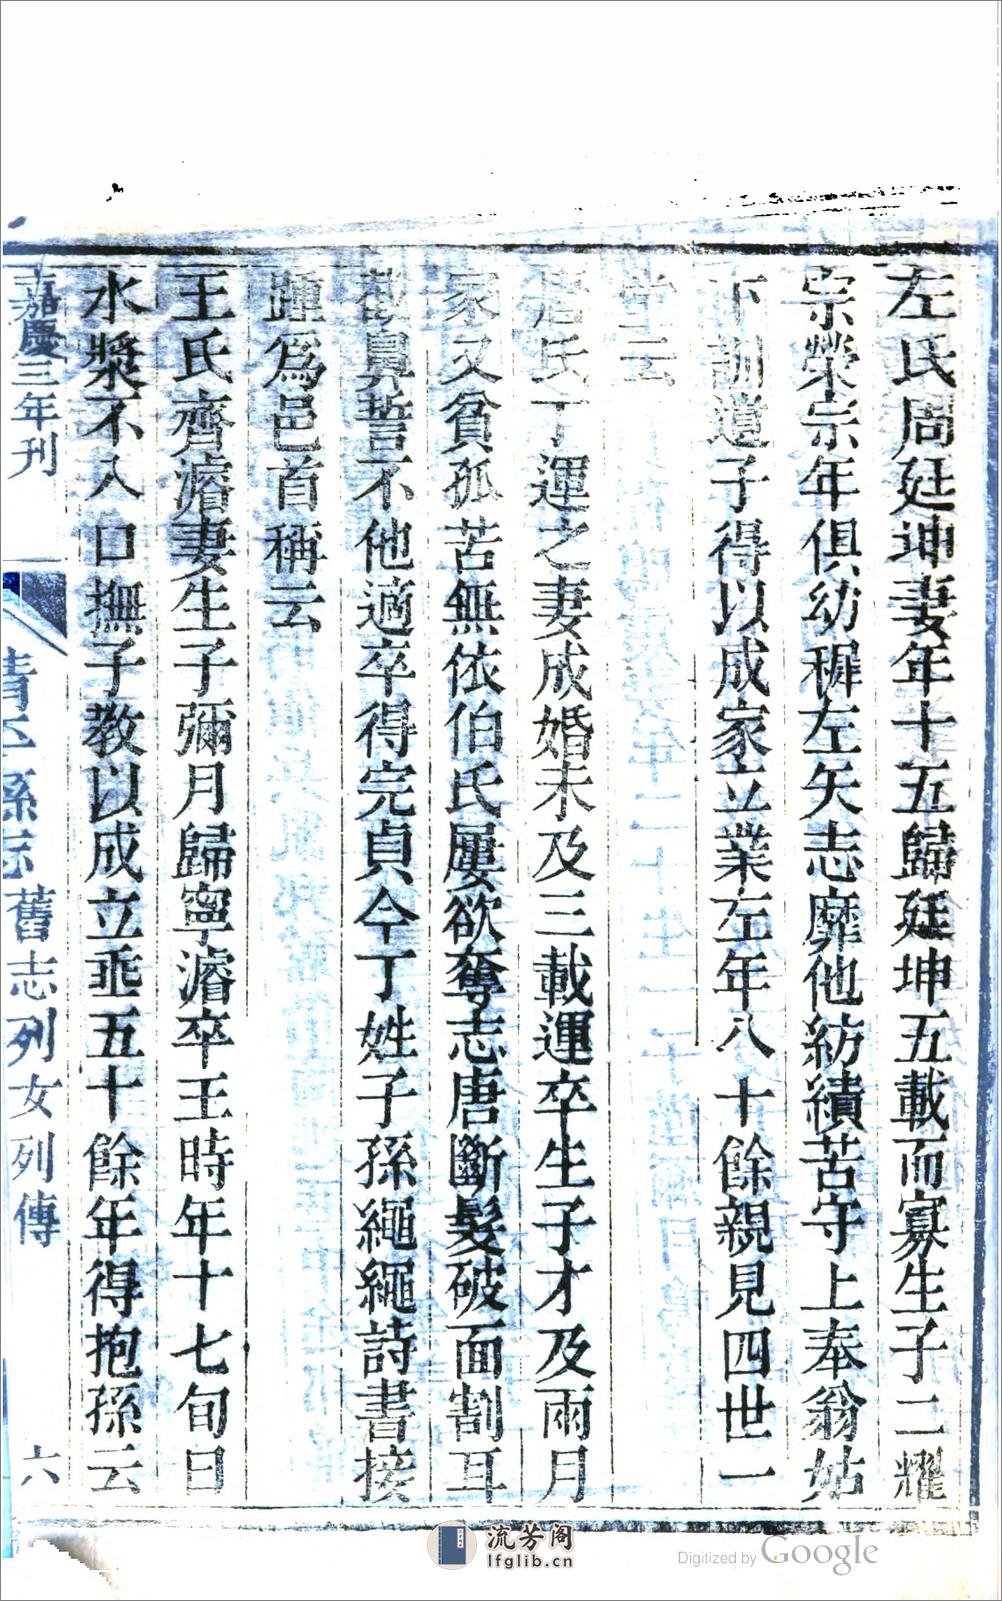 左氏周廷坤妻年十五歸廷坤五載而寡生子二耀
宗榮宗年俱幼穉左矢志靡他紡績苦守上奉翁姑
下訓遺子得以成家立業左年八十餘親見四世一
堂云
唐氏丁運之妻成婚未及三載運卒生子才及兩月
家又貧孤苦無依伯氏屢欲奪志唐斷髮破面割耳
截鼻誓不他適卒得完貞今丁姓子孫繩繩詩書接
踵爲邑首稱云
王氏齊濬妻生子彌月歸寧濬卒王時年十七旬日
水漿不入口撫子教以成立垂五十餘年得抱孫云
嘉慶三年刊
縣志舊志列女列傳
六
流芳阁
lfglib.cn
Digitized by Google